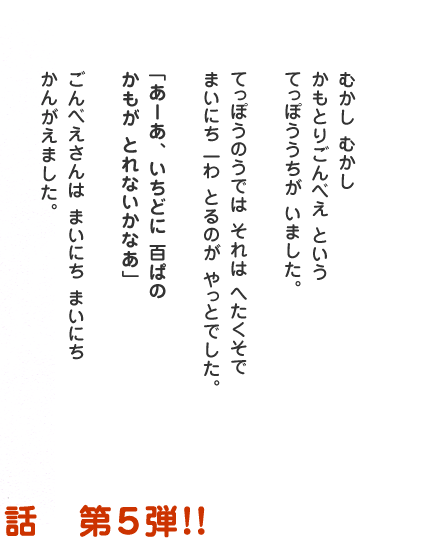 むかし むかし
かもとりごんべえ という
てっぽううちが いました。
てっぽうのうでは それは へたくそで
まいにち 一わ とるのが やっとでした。
「あーあ、いちどに 百ぱの
かもが とれないかなあ」
ごんべえさんは まいにち まいにち
かんがえました。
話 第5弾!!